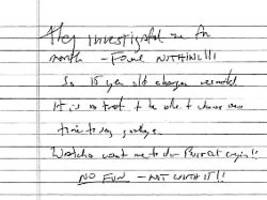 They investigated me for
month – FOUND NOTHING!!!
So 15 year old charges resulted
It is a treat to be able to choose one's
time to say goodbye.
Watcha want me to do – Burst out cryin!!
NO FUN – NOT WORTH IT!!